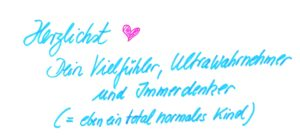 Herzlichst
Dein Vielfühler, Ultrawahrnehmer
und Immerdenker
(= eben ein total normales Kind)